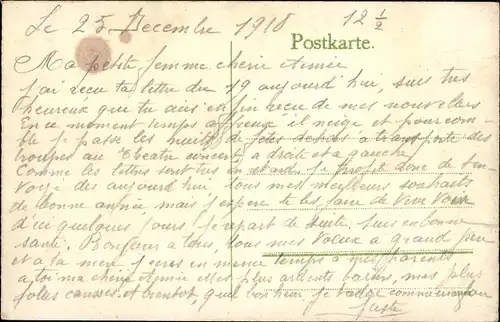 Le 25 Decembre 1918 12 ½
Postkarte.
Ma petite femme cherie Aimée
j'ai recu ta lettre du 19 aujourd'hui, suis très
heureux que tu aies enfin recu de mes nouvelles
En ce moment temps affreux il neige et pour com-
ble je passe les nuits de fêtes depuis a transporter des
troupes au theatre concert, a droite et a gauche
Comme les lettres sont très en retard je profite donc de t'en-
voyé des aujourd'hui, tous mes meilleurs souhaits
de bonne année, mais j'espere te les faire de vive voix
d'ici quelques jours, je repart de suite, suis en bonne
santé. Bonjour a tous, tous mes voeux a grand père
et a ta mere j'ecris en meme temps a mes parents
a toi ma cherie Aimée mes plus ardents baisers, mes plus
folles caresses et bientot, quel bonheur je